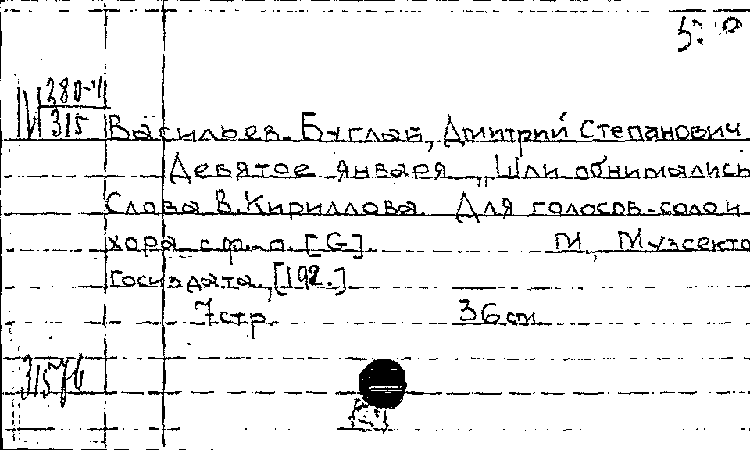 М 280-4
315
Васильев-Буглай, Дмитрий Степанович
Девятое января „Шли обнимались
Слова В. Кириллова. Для голосов-соло и
хора с ф.-п. [G]. М., Музсекто
Госиздата, [192.]
7 стр. 36 см
31576